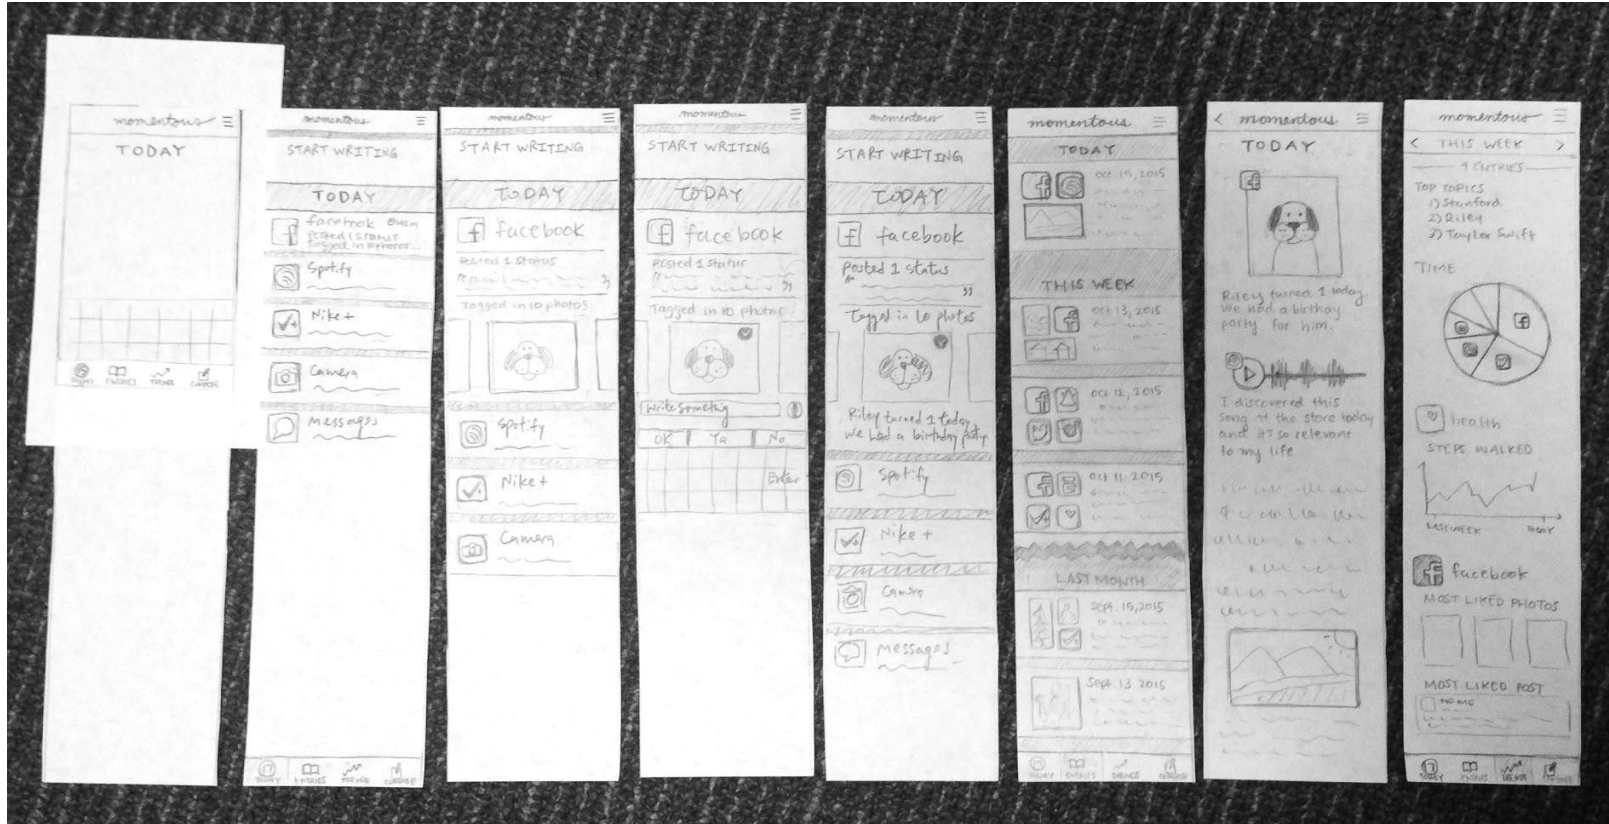 momentous
TODAY
TODAY
ENTRIES
TRENDS
momentous
START WRITING
TODAY
facebook
Posted 1 status
Tagged in 10 photos...
Spotify
Nike+
Camera
Messages
TODAY
ENTRIES
TRENDS
momentous
START WRITING
TODAY
facebook
Posted 1 status
Tagged in 10 photos
Spotify
Nike+
Camera
momentous
START WRITING
TODAY
facebook
Posted 1 status
Tagged in 10 photos
Write someting
OK Ya No
Enter
momentous
START WRITING
TODAY
facebook
Posted 1 status
Tagged in 10 photos
Riley turned 1 today
We had a birthday party
Spotify
Nike+
Camera
Messages
momentous
TODAY
Oct. 15, 2015
THIS WEEK
Oct 13, 2015
Oct 12, 2015
Oct 11. 2015
LAST MONTH
Sept. 15, 2015
Sept. 13 2015
TODAY
ENTRIES
TRENDS
< momentous
TODAY
Riley turned 1 today.
We had a birthay
party for him.
I discovered this
song at the store today
and it's so relevant
to my life
momentous
< THIS WEEK >
4 ENTRIES
TOP TOPICS
1) Stanford
2) Riley
3) Taylor Swift
TIME
health
STEPS WALKED
LAST WEEK TODAY
facebook
MOST LIKED PHOTOS
MOST LIKED POST
NAME
TODAY
ENTRIES
TRENDS